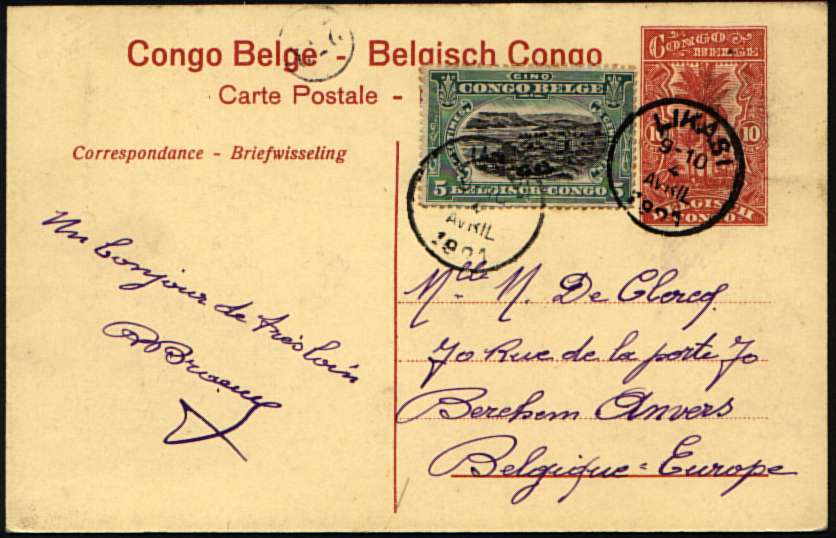 Congo Belge - Belgisch Congo
Carte Postale -
Correspondance - Briefwisseling
CINQ
CONGO BELGE
CENTIMES
5 BELGISCH-CONGO 5
AVRIL
CONGO
BELGE
10 10
BELGISCH
CONGO
LIKASI
9-10
AVRIL
1921
Un bonjour de très loin
Mlle M. De Clercq
70 Rue de la porte 70
Berchem Anvers
Belgique = Europe